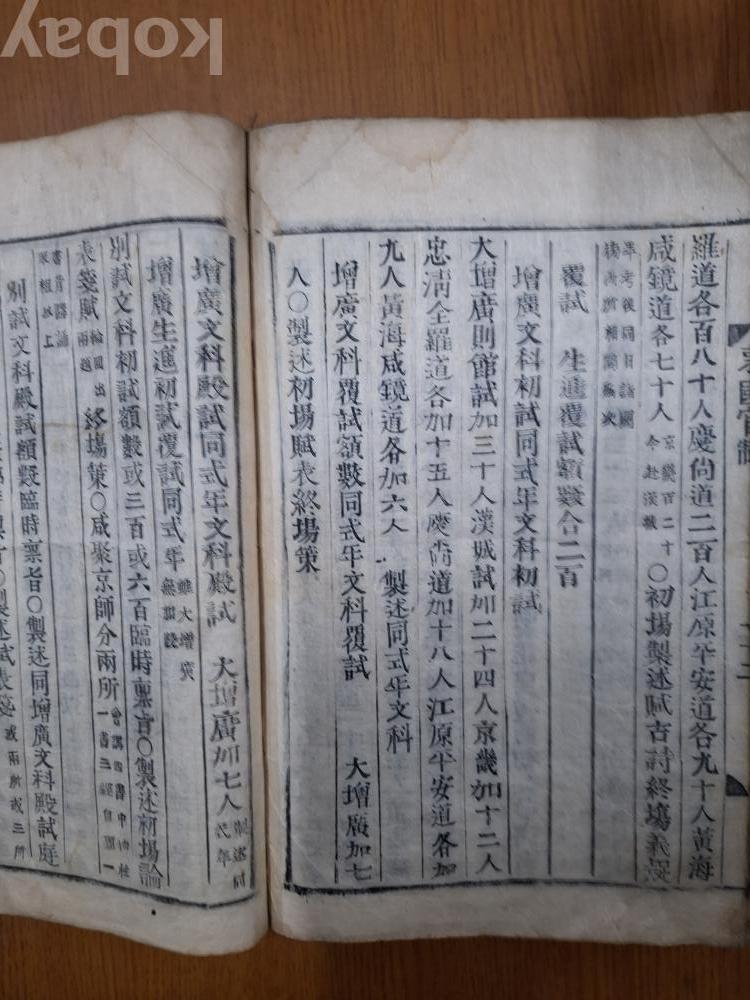 kobay
羅道各百八十人慶尙道二百人江原平安道各九十人黃海
咸鏡道各七十人京畿百二十今赴漢城○初場製述賦古詩終場義疑
覆試 生進覆試額數合二百
增廣文科初試同式年文科初試
大增廣則館試加三十人漢城試加二十四人京畿加十二人
忠淸全羅道各加十五人慶尙道加十八人江原平安道各加
九人黃海咸鏡道各加六人 製述同式年文科
增廣文科覆試額數同式年文科覆試 大增廣加七
人○製述初場賦表終場策
增廣文科殿試同式年文科殿試 大增廣加七人製述同式年
增廣生進初試覆試同式年雖大增廣無加設
別試文科初試額數或三百或六百臨時稟旨○製述初場論
表箋賦兩題終場策○咸聚京師分兩所
別試文科殿試額數臨時稟旨○製述同增廣文科殿試庭